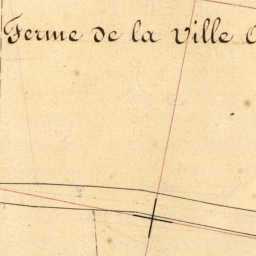 Ferme de la Ville